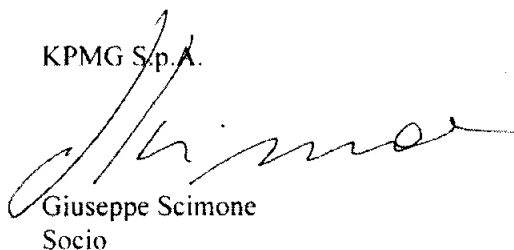 KPMG S.p.A.
Giuseppe Scimone
Socio